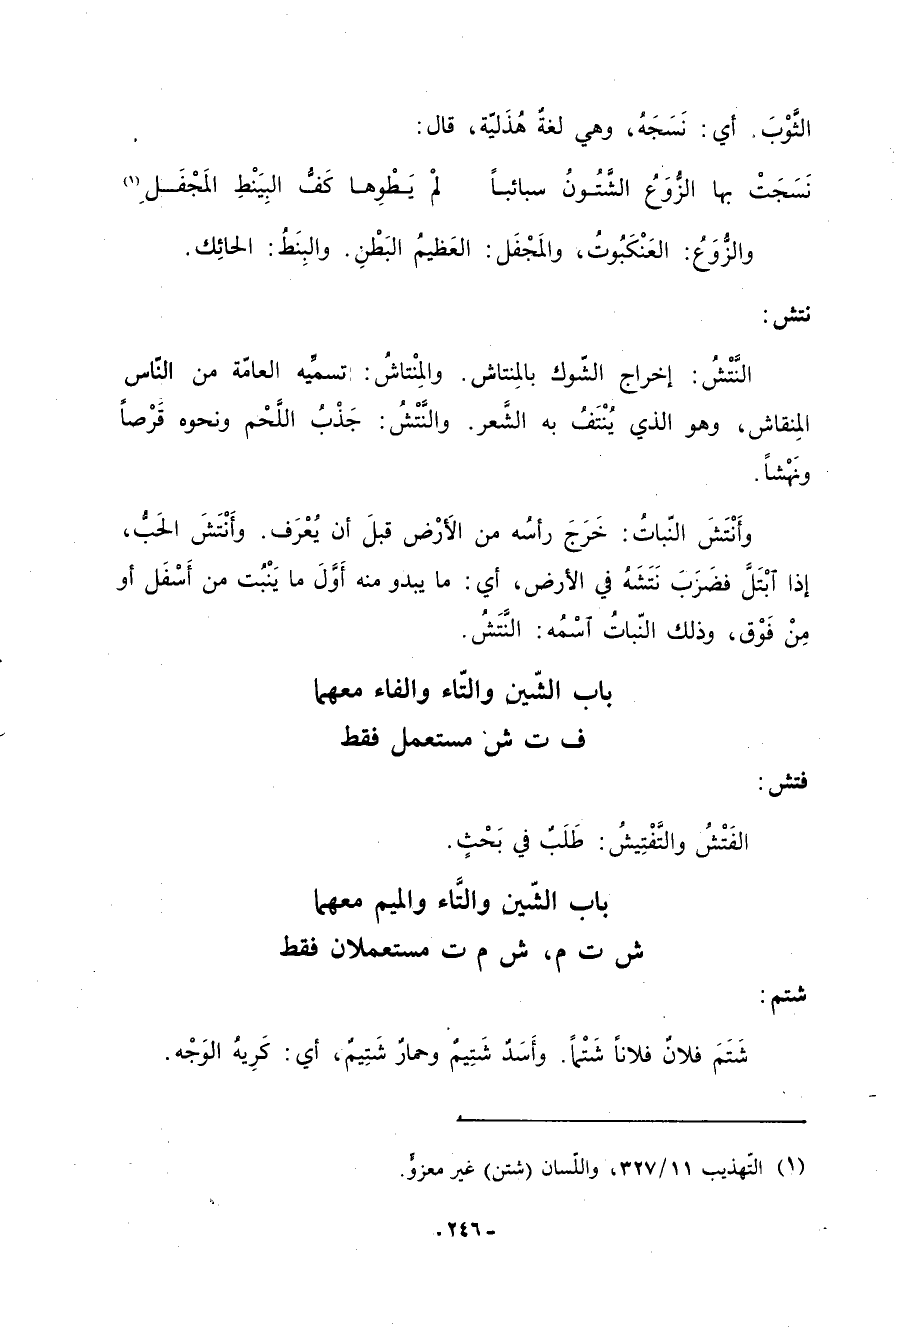 الثَّوْبَ. أي: نَسَجَهُ، وهي لغةٌ هُذَليّة، قال:
نَسَجَتْ بها الزُّوَعُ الشَّتُونُ سبائباً لمْ يَطْوِها كَفُّ البِيَنْطِ المَجْفَلِ(١)
والزُّوَعُ: العَنْكَبُوتُ، والمَجْفَل: العَظيمُ البَطْنِ. والبِنَطُ: الحائِك.
نتش:
النَّتْشُ: إخراج الشّوك بالمِنتاش. والمِنْتاشُ: تسمِّيه العامّة من النّاس
المِنقاش، وهو الذي يُنْتَفُ به الشَّعر. والنَّتْشُ: جَذْبُ اللَّحْم ونحوه قَرْصاً
ونَهْشاً.
وأَنْتَشَ النّباتُ: خَرَجَ رأسُه من الأَرْض قبلَ أن يُعْرَف. وأَنْتَشَ الحَبُّ،
إذا ٱبْتَلَّ فضَرَبَ نَتَشَهُ في الأرض، أي: ما يبدو منه أَوَّلَ ما يَنْبُت من أَسْفَل أو
مِنْ فَوْق، وذلك النّباتُ ٱسْمُه: النَّتَشُ.
باب الشّين والتّاء والفاء معهما
ف ت ش مستعمل فقط
فتش:
الفَتْشُ والتَّفْتِيشُ: طَلَبٌ في بَحْثٍ.
باب الشّين والتَّاء والميم معهما
ش ت م، ش م ت مستعملان فقط
شتم:
شَتَمَ فلانٌ فلاناً شَتْماً. وأَسَدٌ شَتِيمٌ وحمارٌ شَتِيمٌ، أي: كَرِيهُ الوَجْه.
(١) التّهذيب ٣٢٧/١١، واللّسان (شتن) غير معزوٍّ.
- ٢٤٦ .